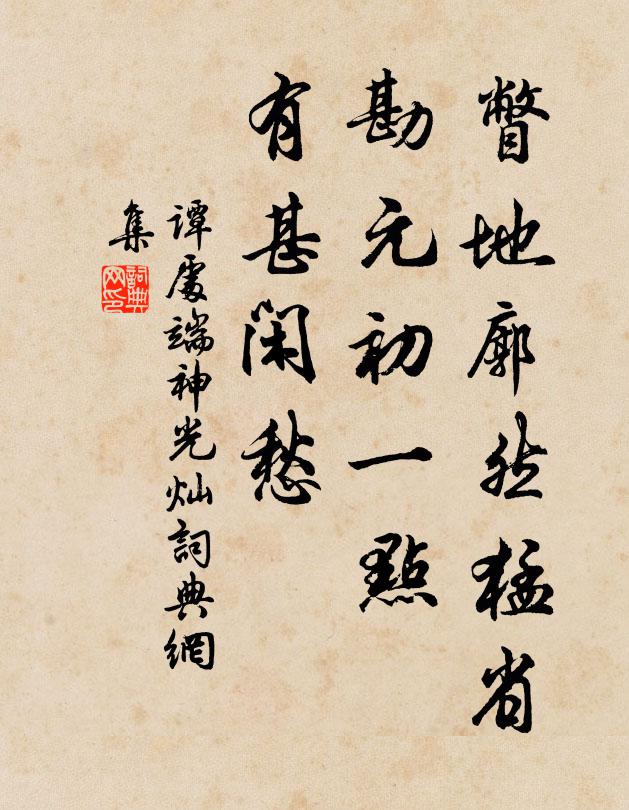 瞥地廓然猛省
勘元初一點
有甚閑愁
譚處端神光灿詞典網
集
詞典
网印